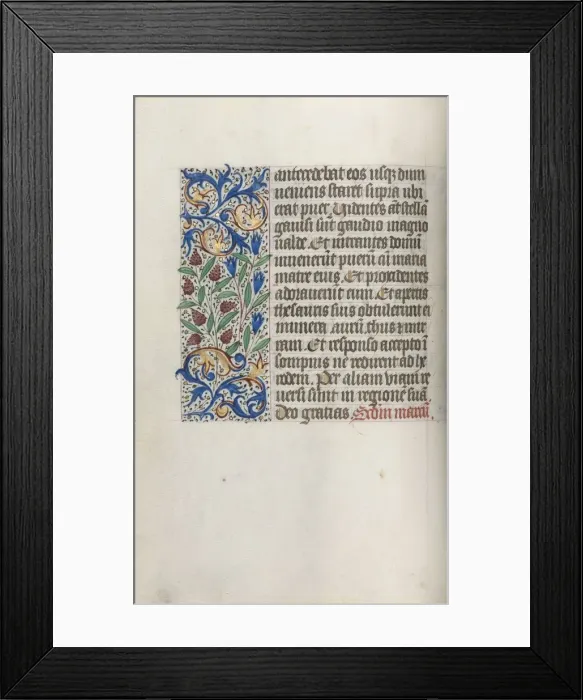 antecedebat eos usq; dum
veniens staret supra ubi
erat puer. Videntes aūt stellā
gavisi sūt gaudio magno
valde. Et intrantes domū
invenerūt puerū cū maria
matre eius. Et procidentes
adoraverūt eum. Et apertis
thesauris suis obtulerūt ei
munera, aurū, thus & mir
ram. Et responso accepto ī
sompnis ne redirent ad he
rodem. Per aliam viam re
versi sunt in regionē suā.
Deo gratias. Scdm marcū.